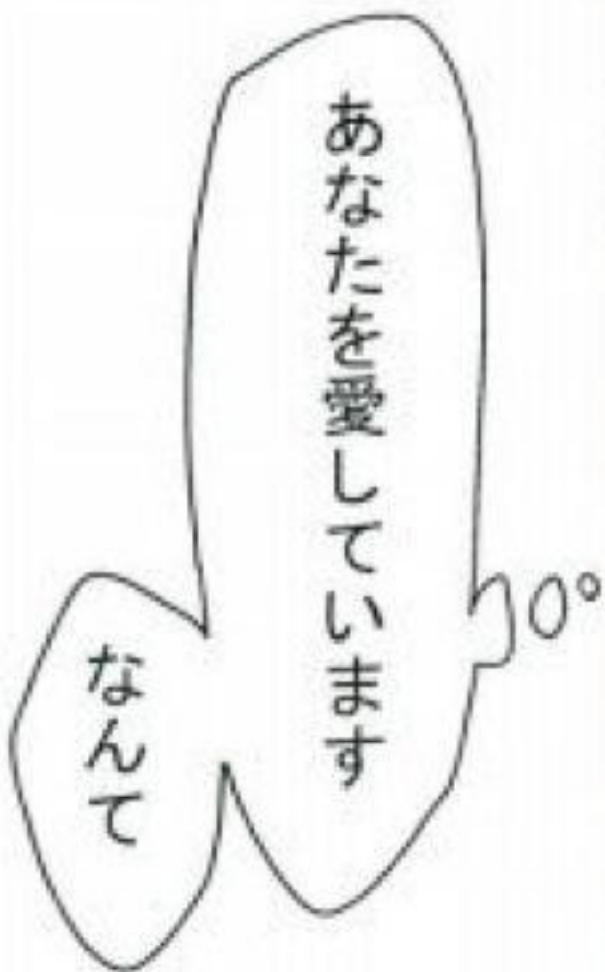 あなたを愛しています
なんて